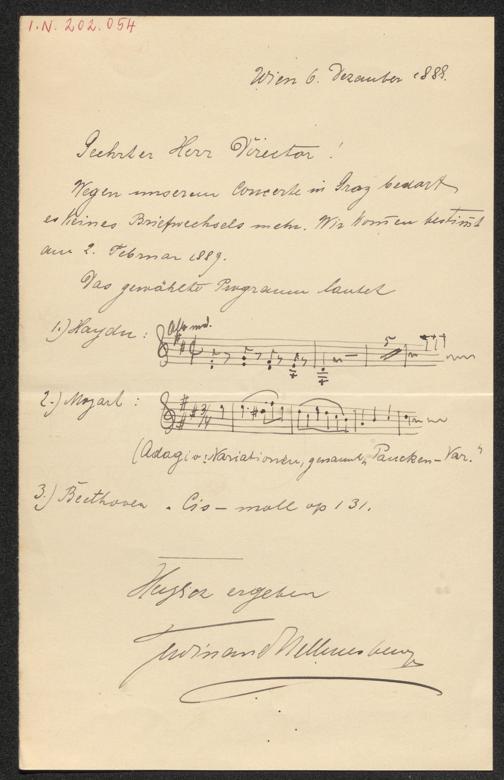 I.N. 202.054
Wien 6. Dezember 1888.
Geehrter Herr Director!
Wegen unserem Concerte in Graz bedarf
es keines Briefwechsels mehr. Wir kom̄en bestim̄t
am 2. Februar 1889.
Das gewählte Programm lautet
1.) Haydn:
2.) Mozart: 3/4
(Adagio: Variationen, genannt „Paucken-Var."
3.) Beethoven. Cis-moll op 131.
ergeben
Ferdinand Hellmesberger